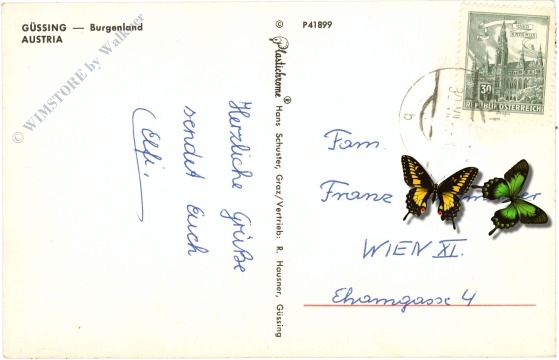 GÜSSING — Burgenland
AUSTRIA
© WIMSTORE by Walkner
Herzliche Grüße
sendet Euch
Elfi.
© Plastichrome ® Hans Schuster, Graz/Vertrieb: R. Hausner, Güssing
P41899
30
REPUBLIK ÖSTERREICH
Fam.
Franz
WIEN XI.
Ehamgasse 4